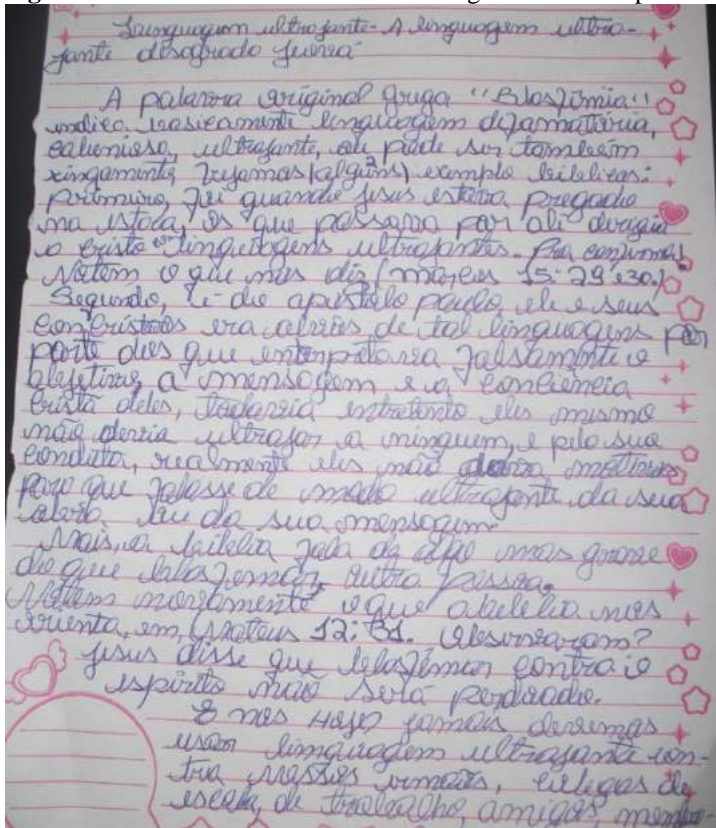 Linguagem ultrajante - A linguagem ultra-
jante desagrada Jueová
A palavra original grega "Blasfimia"
indica, basicamente linguagem difamatória,
caluniosa, ultrajante, ele pode ser também
xingamento, Vejamos (alguns) exemplo biblicos:
primeiro, foi quando jesus estava pregado
na estaca, os que passava por ali dirigia
o cristo linguagens ultrajantes. Pra confirmar
Notem o que nos dis (marcos 15:29 e 30.)
Segundo, é do apóstolo paulo, ele e seus
concristãos era alvos de tal linguagens por
parte dos que interpretava falsamente o
objetivo, a mensagem e a conciência
cristã deles, todavia entretanto eles mesmo
não devia ultrajar a ninguem, e pela sua
conduta, realmente eles não dava motivos
para que falasse de modo ultrajante da sua
obra. Ou da sua mensagem.
Mais, a biblia fala de algo mas grave
do que blasfemar outra pessoa.
Notem novamente o que a biblia nos
orienta, em, (Mateus 12:31. Observaram?
jesus disse que blasfemar contra o
espirito não será perdoado.
E nos Hoje jamais devemos
usar linguagem ultrajante con-
tra Nossos irmãos, colegas de
escola, de trabalho, amigos,